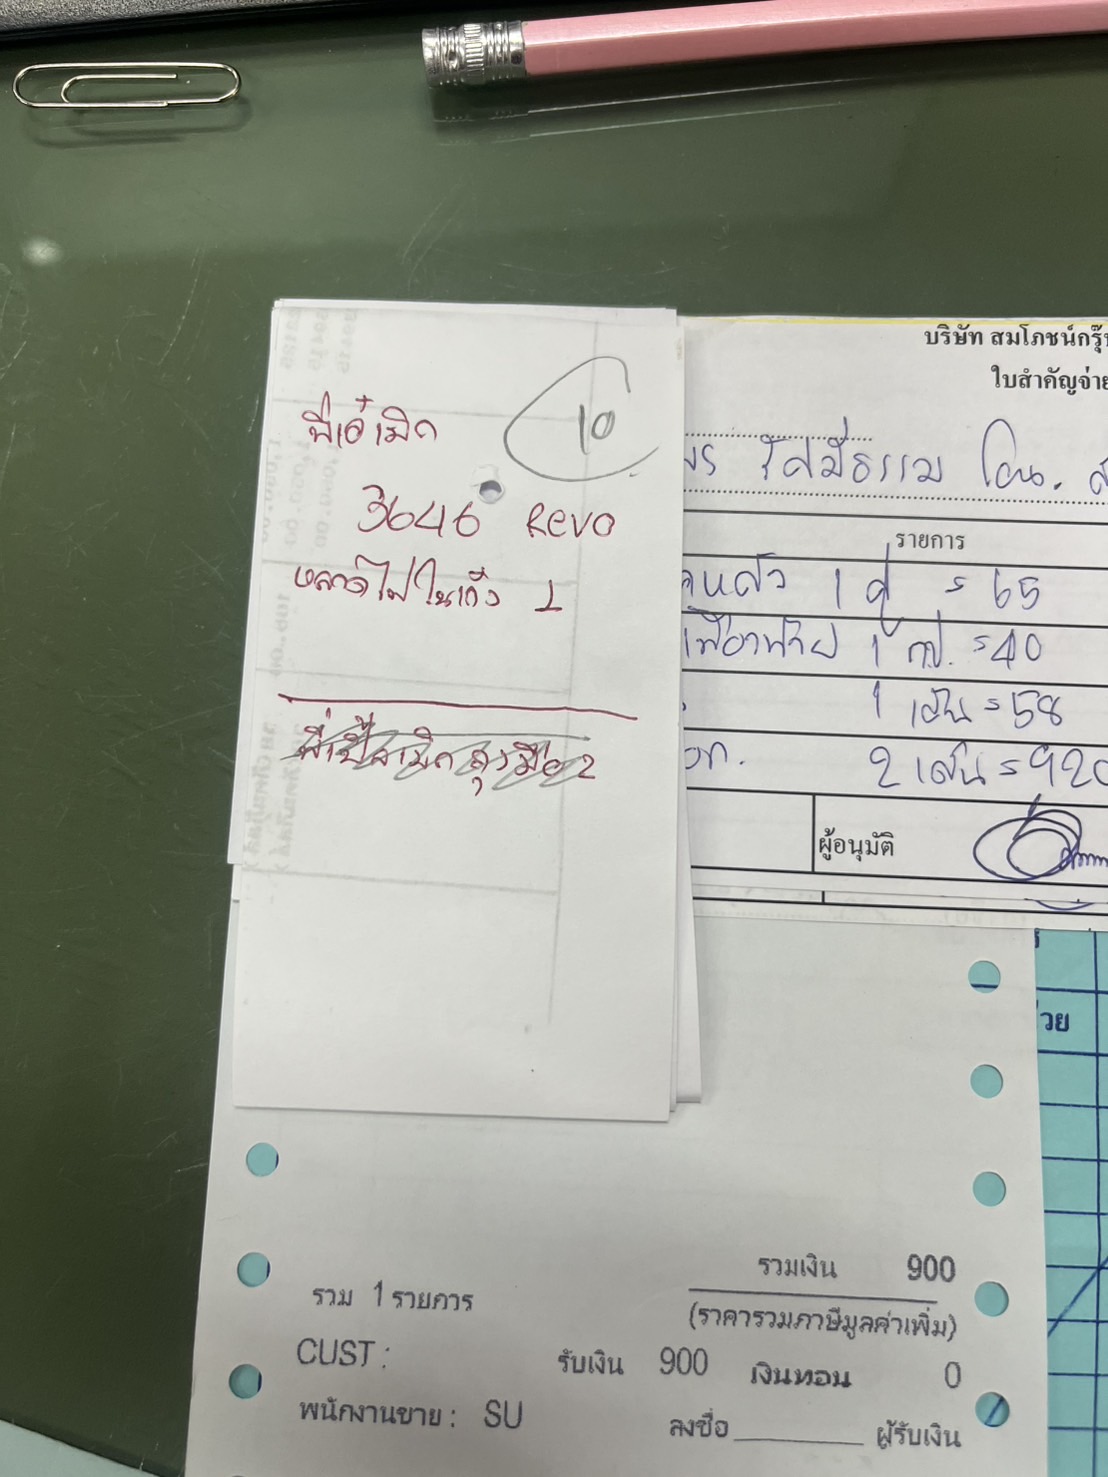 พี่เอ๋ เบิก
10
3646 Revo
หลอดไฟในเก๋ง 1
พี่เปิ้ล เบิก ถุงมือ 2
บริษัท สมโภชน์กรุ๊ป
ใบสำคัญจ่าย
พร รัศมีธรรม โอน.
รายการ
หลัง 1 คู่ = 65
เฟืองท้าย 1 กป. = 40
1 เส้น = 58
2 เส้น = 920
ผู้อนุมัติ
วย
รวมเงิน 900
รวม 1 รายการ
(ราคารวมภาษีมูลค่าเพิ่ม)
CUST :
รับเงิน 900 เงินทอน 0
พนักงานขาย : SU
ลงชื่อ ผู้รับเงิน